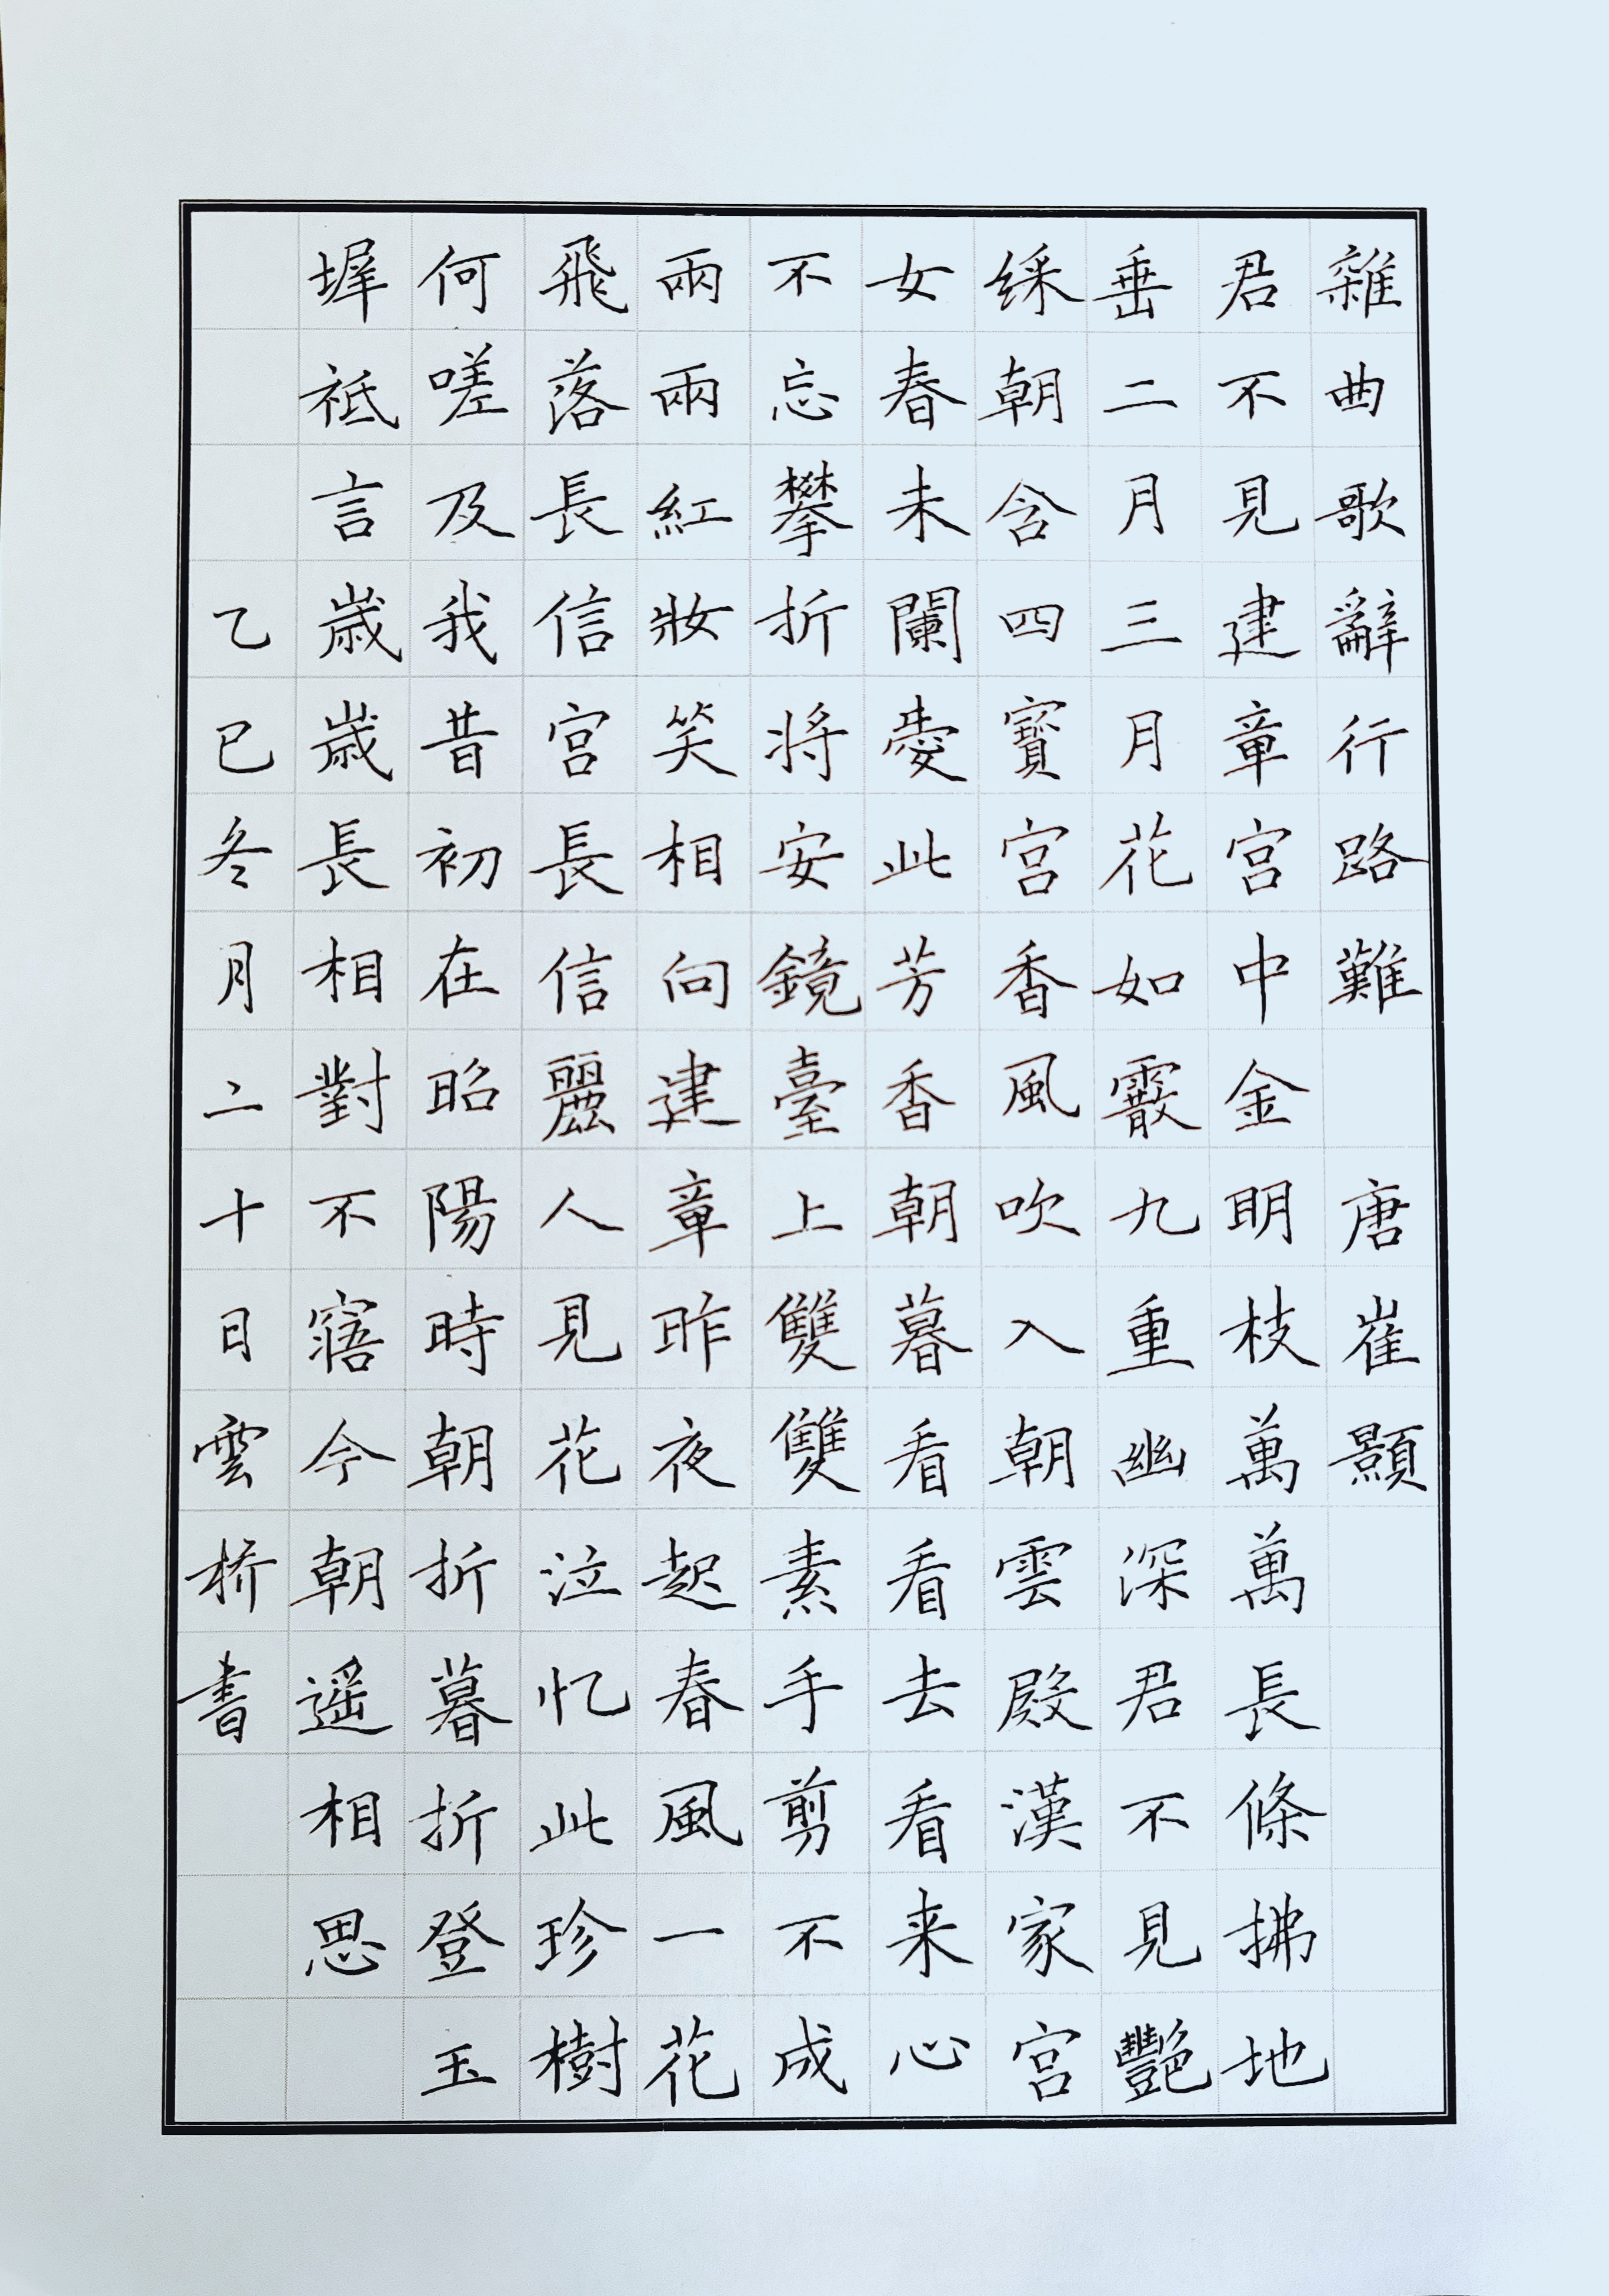 雜曲歌辭行路難 唐崔顥
君不見建章宮中金明枝萬萬長條拂地
垂二月三月花如霰九重幽深君不見豔
綵朝含四寶宮香風吹入朝雲殿漢家宮
女春未闌愛此芳香朝暮看看去看来心
不忘攀折将安鏡臺上雙雙素手剪不成
兩兩紅妝笑相向建章昨夜起春風一花
飛落長信宮長信麗人見花泣忆此珍樹
何嗟及我昔初在昭陽時朝折暮折登玉
墀祗言歲歲長相對不寤今朝遥相思
乙巳冬月二十日雲桥書